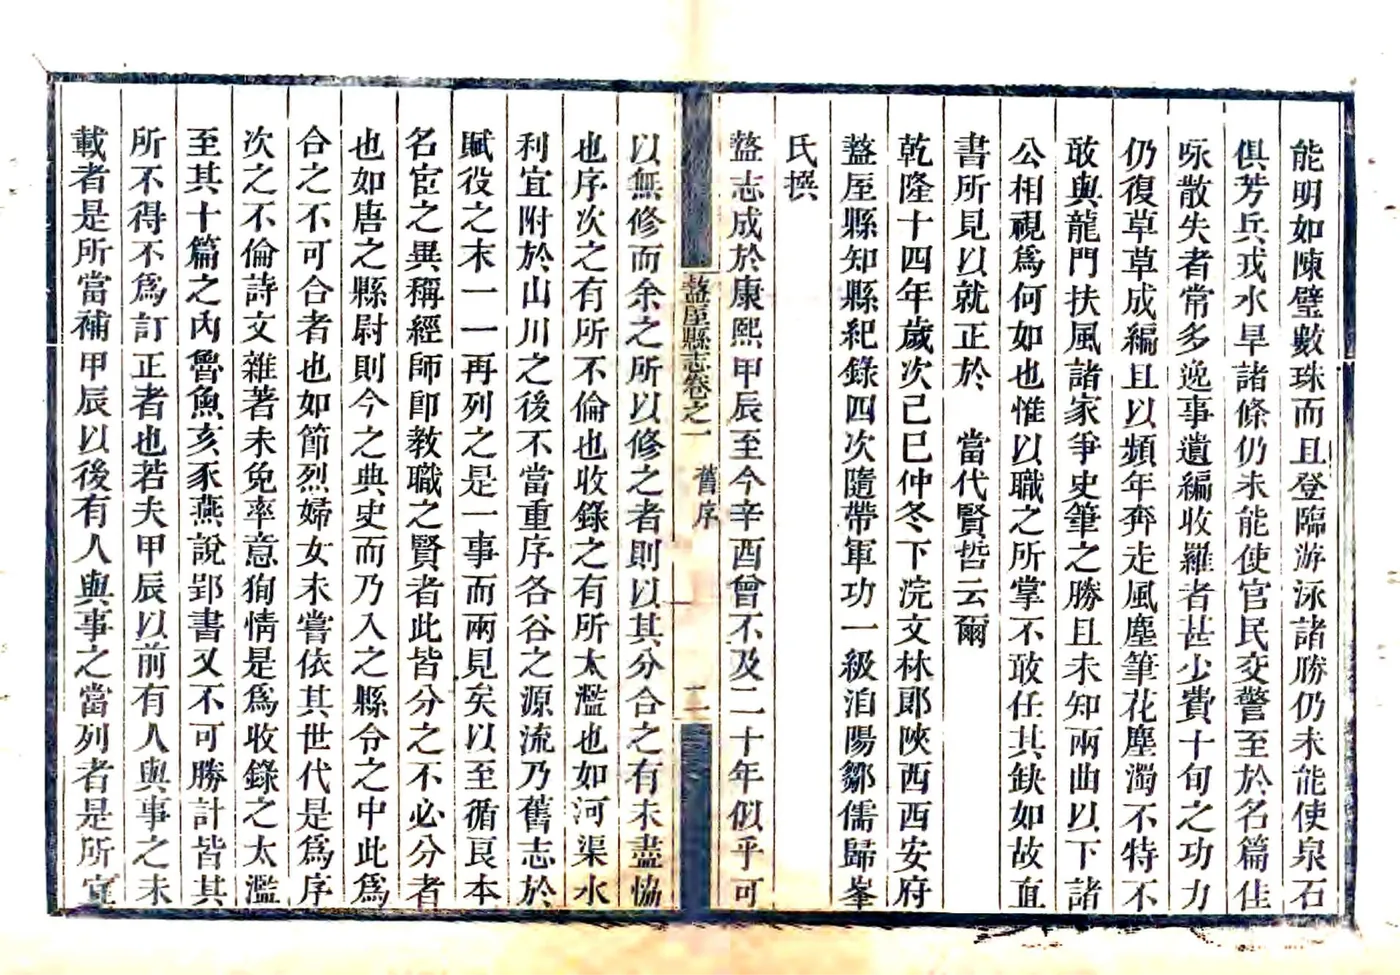 能明如陳璧數珠而且登臨游泳諸勝仍未能使泉石
俱芳兵戎水旱諸條仍未能使官民交警至於名篇佳
咏散失者常多逸事遺編收羅者甚少費十旬之功力
仍復草草成編且以頻年奔走風塵筆花塵濁不特不
敢與龍門扶風諸家爭史筆之勝且未知兩曲以下諸
公相視爲何如也惟以職之所掌不敢任其缺如故直
書所見以就正於　當代賢哲云爾
乾隆十四年歲次己巳仲冬下浣文林郎陝西西安府
盩厔縣知縣紀錄四次隨帶軍功一級洎陽鄒儒歸峯
氏撰
盩志成於康熙甲辰至今辛酉曾不及二十年似乎可
盩厔縣志卷之一　舊序　二
以無修而余之所以修之者則以其分合之有未盡恊
也序次之有所不倫也收錄之有所太濫也如河渠水
利宜附於山川之後不當重序各谷之源流乃舊志於
賦役之末一一再列之是一事而兩見矣以至循良本
名宦之異稱經師卽教職之賢者此皆分之不必分者
也如唐之縣尉則今之典史而乃入之縣令之中此爲
合之不可合者也如節烈婦女未嘗依其世代是爲序
次之不倫詩文雜著未免率意狥情是爲收錄之太濫
至其十篇之內魯魚亥豕燕說郢書又不可勝計皆其
所不得不爲訂正者也若夫甲辰以前有人與事之未
載者是所當補甲辰以後有人與事之當列者是所宜